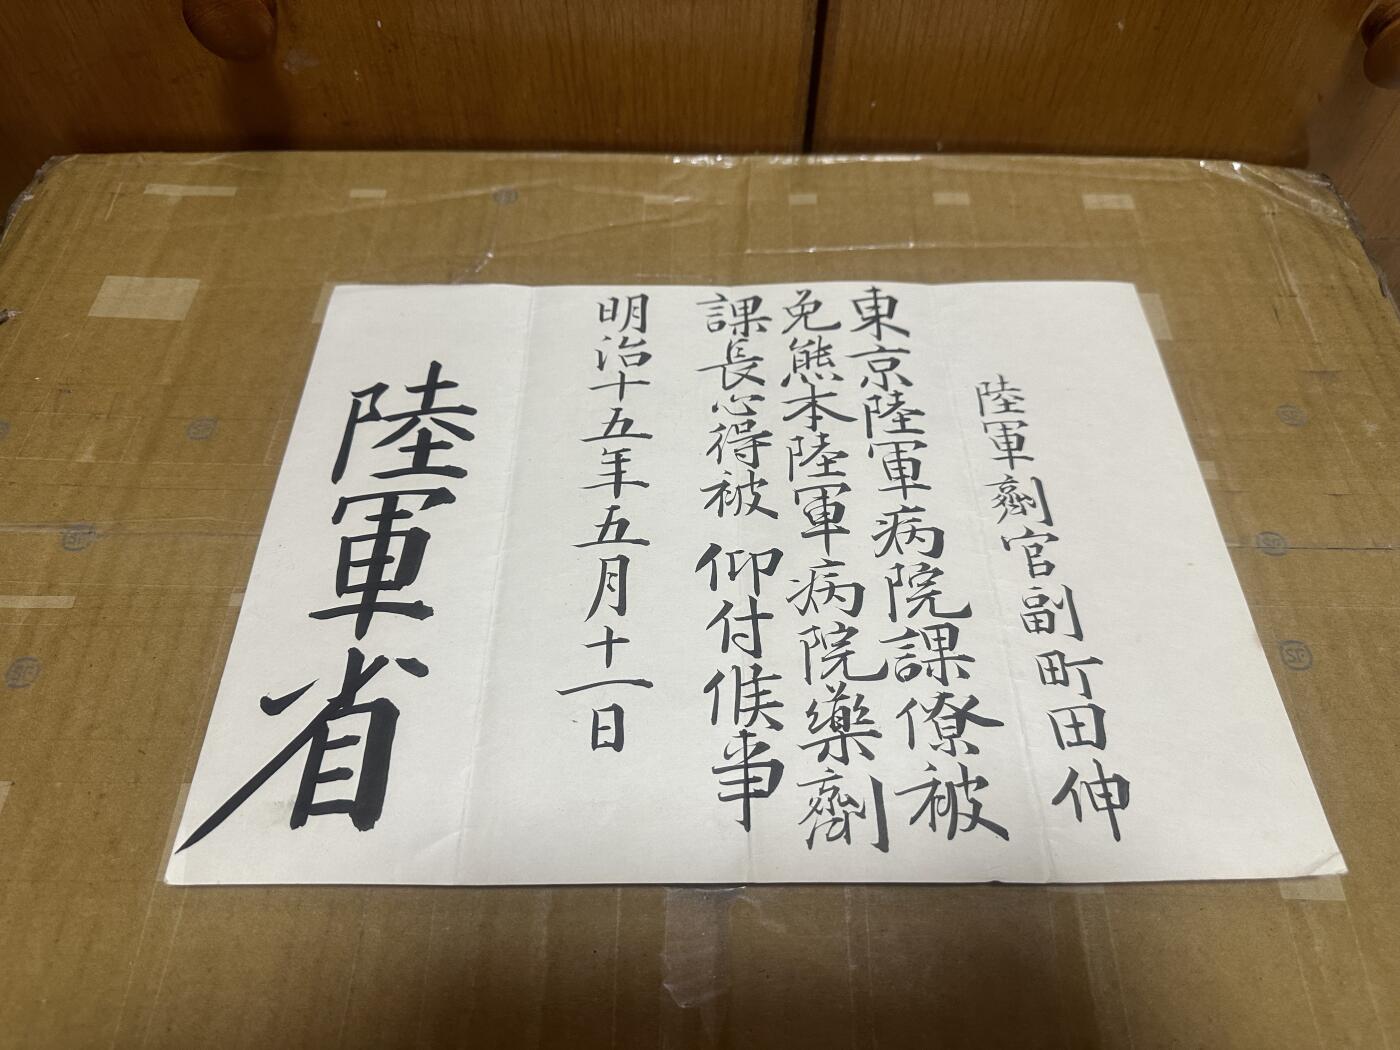 陸軍劑官副町田伸
東京陸軍病院課僚被
免熊本陸軍病院藥劑
課長心得被 仰付候事
明治十五年五月十一日
陸軍省